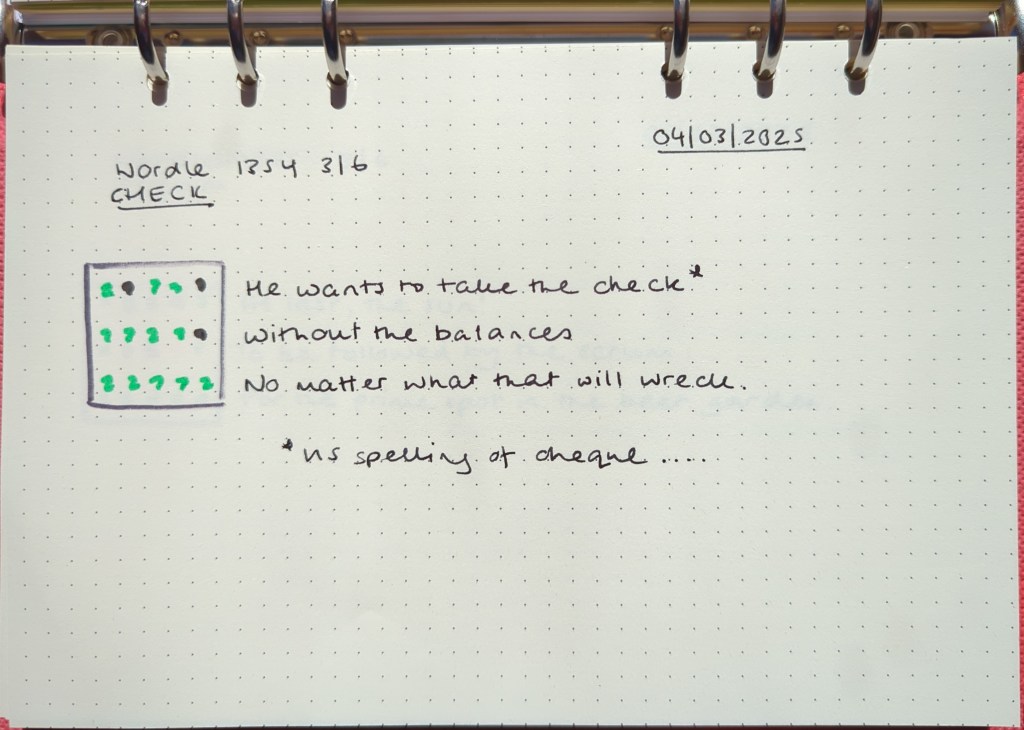 04/03/2025
Wordle 1354 3/6
CHECK
He wants to take the check*
without the balances
No matter what that will wreck.
*US spelling of cheque .....